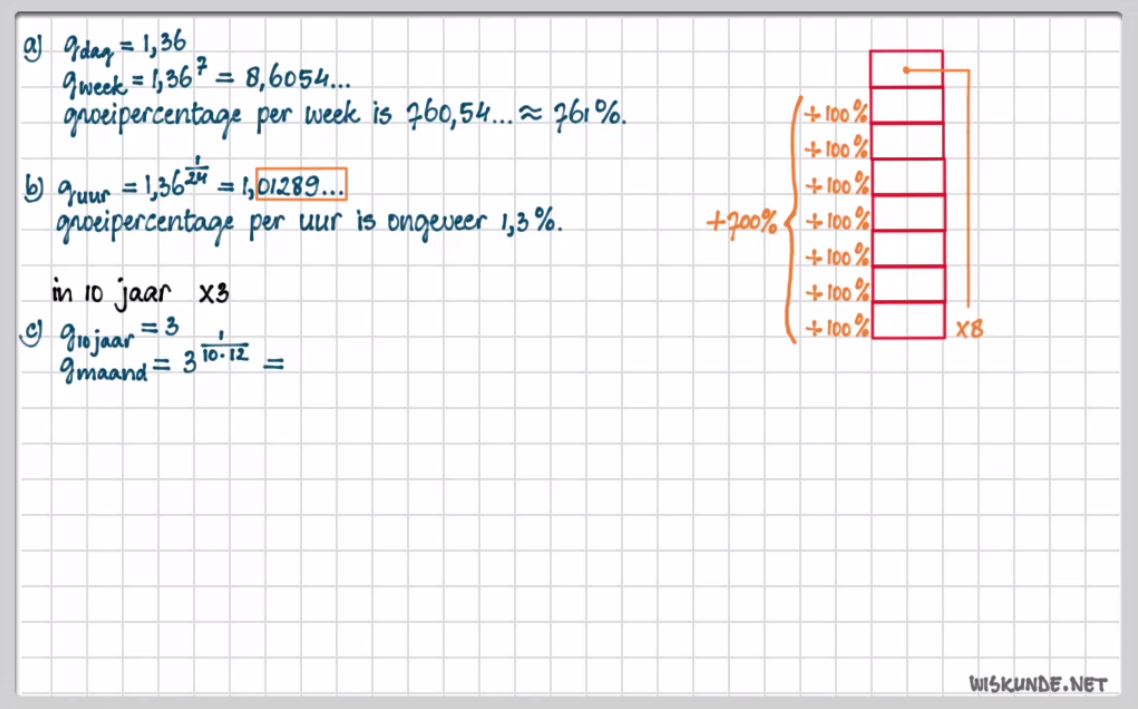 a) g dag = 1,36
g week = 1,36^7 = 8,6054...
groeipercentage per week is 760,54... ≈ 761%.
b) g uur = 1,36^(1/24) = 1,01289...
groeipercentage per uur is ongeveer 1,3%.
in 10 jaar x3
c) g 10 jaar = 3
g maand = 3^(1/(10·12)) =
+100%
+100%
+100%
+700%
+100%
+100%
+100%
+100%
x8
WISKUNDE.NET